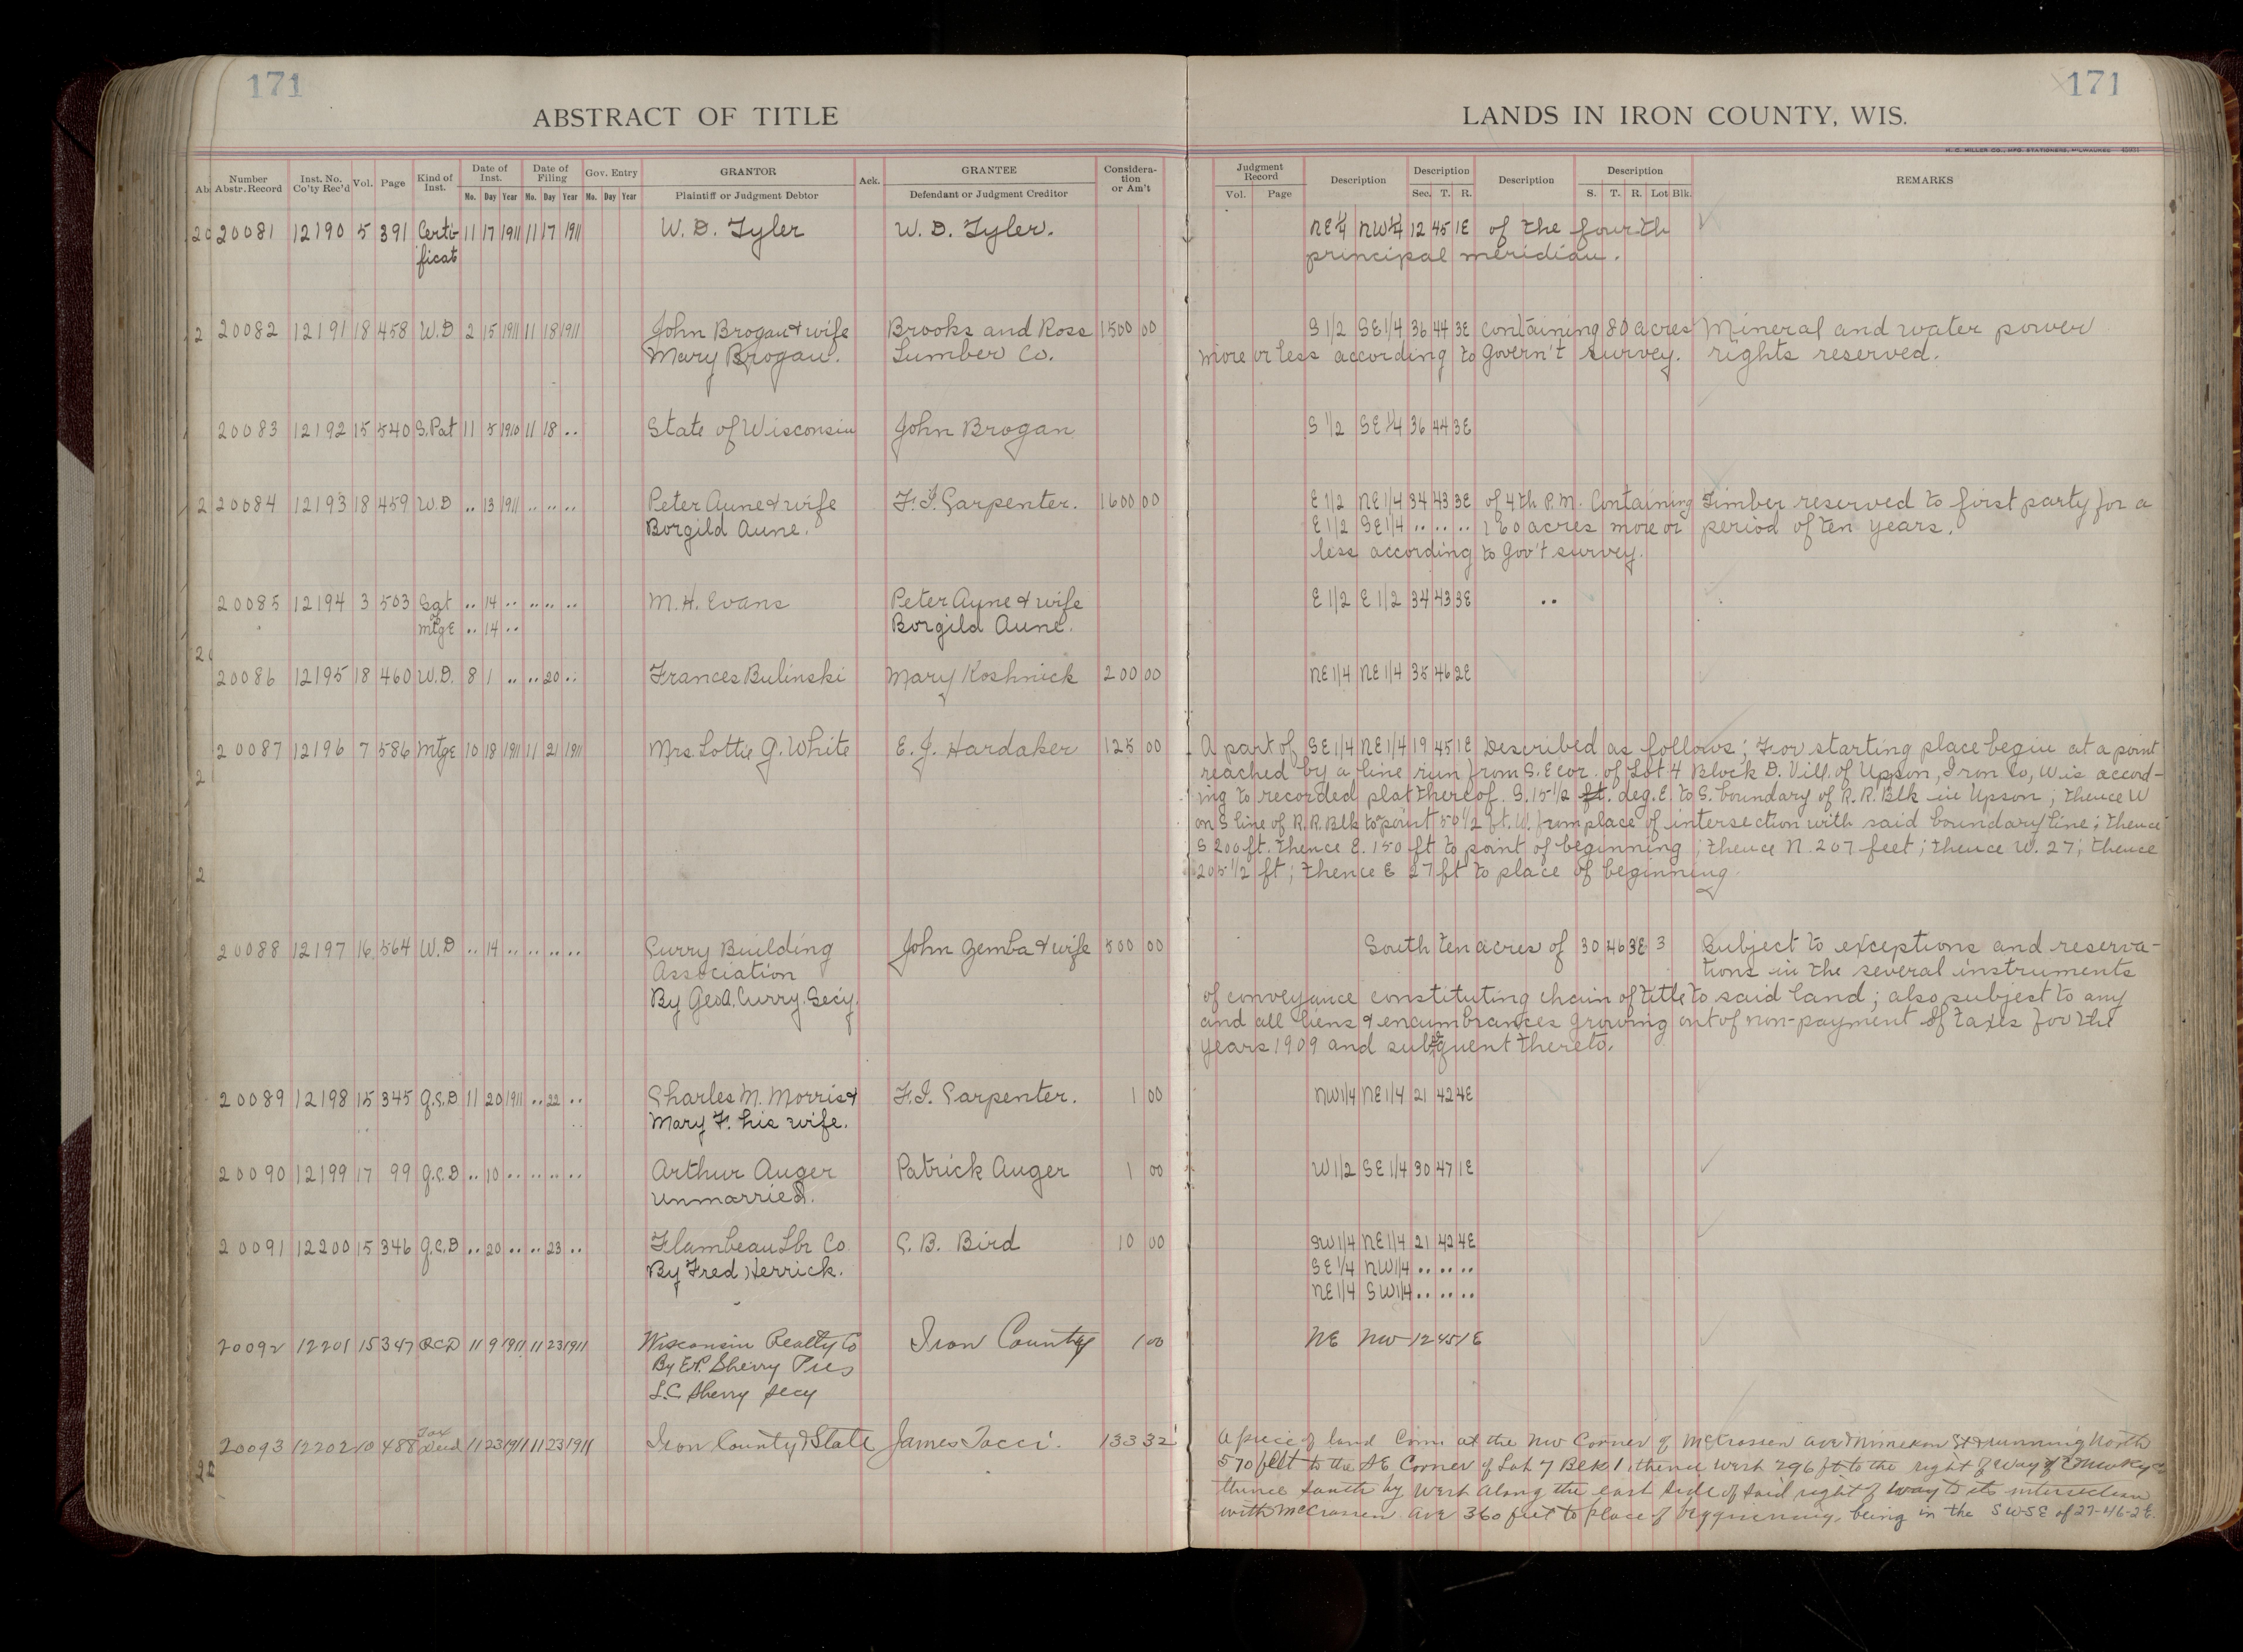 171
171
ABSTRACT OF TITLE
LANDS IN IRON COUNTY, WIS.
H. C. MILLER CO., MFG. STATIONERS, MILWAUKEE
Ab Number Abstr. Record Inst. No. Co'ty Rec'd Vol. Page Kind of Inst. Date of Inst. Mo. Day Year Date of Filing Mo. Day Year Gov. Entry Mo. Day Year GRANTOR Plaintiff or Judgment Debtor Ack. GRANTEE Defendant or Judgment Creditor Considera-tion or Am't Judgment Record Vol. Page Description Description Sec. T. R. Description Description S. T. R. Lot Blk. REMARKS
20081 12190 5 391 Certi- 11 17 1911 11 17 1911 W. D. Tyler W. D. Tyler. NE 1/4 NW 1/4 12 45 1E of the fourth
ficat principal meridian.
20082 12191 18 458 W.D 2 15 1911 11 18 1911 John Brogan & wife Brooks and Ross 1500 00 S 1/2 SE 1/4 36 44 3E containing 80 acres Mineral and water power
Mary Brogan. Lumber Co. more or less according to Govern't survey. rights reserved.
20083 12192 15 540 S. Pat 11 5 1910 11 18 .. State of Wisconsin John Brogan S 1/2 SE 1/4 36 44 3E
20084 12193 18 459 W.D .. 13 1911 .. .. .. Peter Aune & wife F. I. Carpenter. 1600 00 E 1/2 NE 1/4 34 43 3E of 4th P.M. Containing Timber reserved to first party for a
Borgild Aune. E 1/2 SE 1/4 .. .. .. 160 acres more or period of ten years.
less according to Gov't survey.
20085 12194 3 503 Sat .. 14 .. .. .. .. M. H. Evans Peter Ayne & wife E 1/2 E 1/2 34 43 3E ..
of mtge .. 14 .. Borgild Aune.
20086 12195 18 460 W.D. 8 1 .. .. 20 .. Frances Bulinski Mary Koshnick 200 00 NE 1/4 NE 1/4 35 46 2E
20087 12196 7 586 Mtge 10 18 1911 11 21 1911 Mrs. Lottie G. White E. J. Hardaker 125 00 A part of SE 1/4 NE 1/4 19 45 1E Described as follows; For starting place begin at a point
reached by a line run from S.E cor. of Lot 4 Block D. Vill. of Upson, Iron Co, Wis accord-
ing to recorded plat thereof. S. 15 1/2 ft. deg. E. to S. boundary of R.R. Blk in Upson; thence W
on S line of R.R. Blk to point 50 1/2 ft. W. from place of intersection with said boundary line; thence
S 200 ft. thence E. 150 ft to point of beginning; thence N. 207 feet; thence W. 27; thence
205 1/2 ft; thence E 27 ft to place of beginning.
20088 12197 16 564 W.D .. 14 .. .. .. .. Curry Building John Zemba & wife 500 00 South ten acres of 30 46 3E 3 Subject to exceptions and reserva-
Association tions in the several instruments
By Geo A. Curry. Secy. of conveyance constituting chain of title to said land; also subject to any
and all liens & encumbrances growing out of non-payment of taxes for the
years 1909 and subsequent thereto.
20089 12198 15 345 Q.C.D 11 20 1911 .. 22 .. Charles M. Morris & F. I. Carpenter. 1 00 NW 1/4 NE 1/4 21 42 4E
Mary F. his wife.
20090 12199 17 99 Q.C.D .. 10 .. .. .. .. Arthur Auger Patrick Auger 1 00 W 1/2 SE 1/4 30 47 1E
unmarried.
20091 12200 15 346 Q.C.D .. 20 .. .. 23 .. Flambeau Lbr Co. C. B. Bird 10 00 SW 1/4 NE 1/4 21 42 4E
By Fred Herrick. SE 1/4 NW 1/4 .. .. ..
NE 1/4 SW 1/4 .. .. ..
20092 12201 15 347 QCD 11 9 1911 11 23 1911 Wisconsin Realty Co Iron County 1 00 NE NW 12 45 1E
By E.P. Sherry Pres
L.C. Sherry Secy
20093 12202 10 488 Tax Deed 11 23 1911 11 23 1911 Iron County & State James Tacci. 133 32 A piece of land Com. at the NW Corner of McCrossen Ave & St & running North
570 feet to the SE Corner of Lot 7 Blk 1, thence West 296 ft to the right of way of
thence South by West along the east side of said right of way to its intersection
with McCrossen Ave 360 feet to place of beggenning, being in the SW-SE of 27-46-2E.